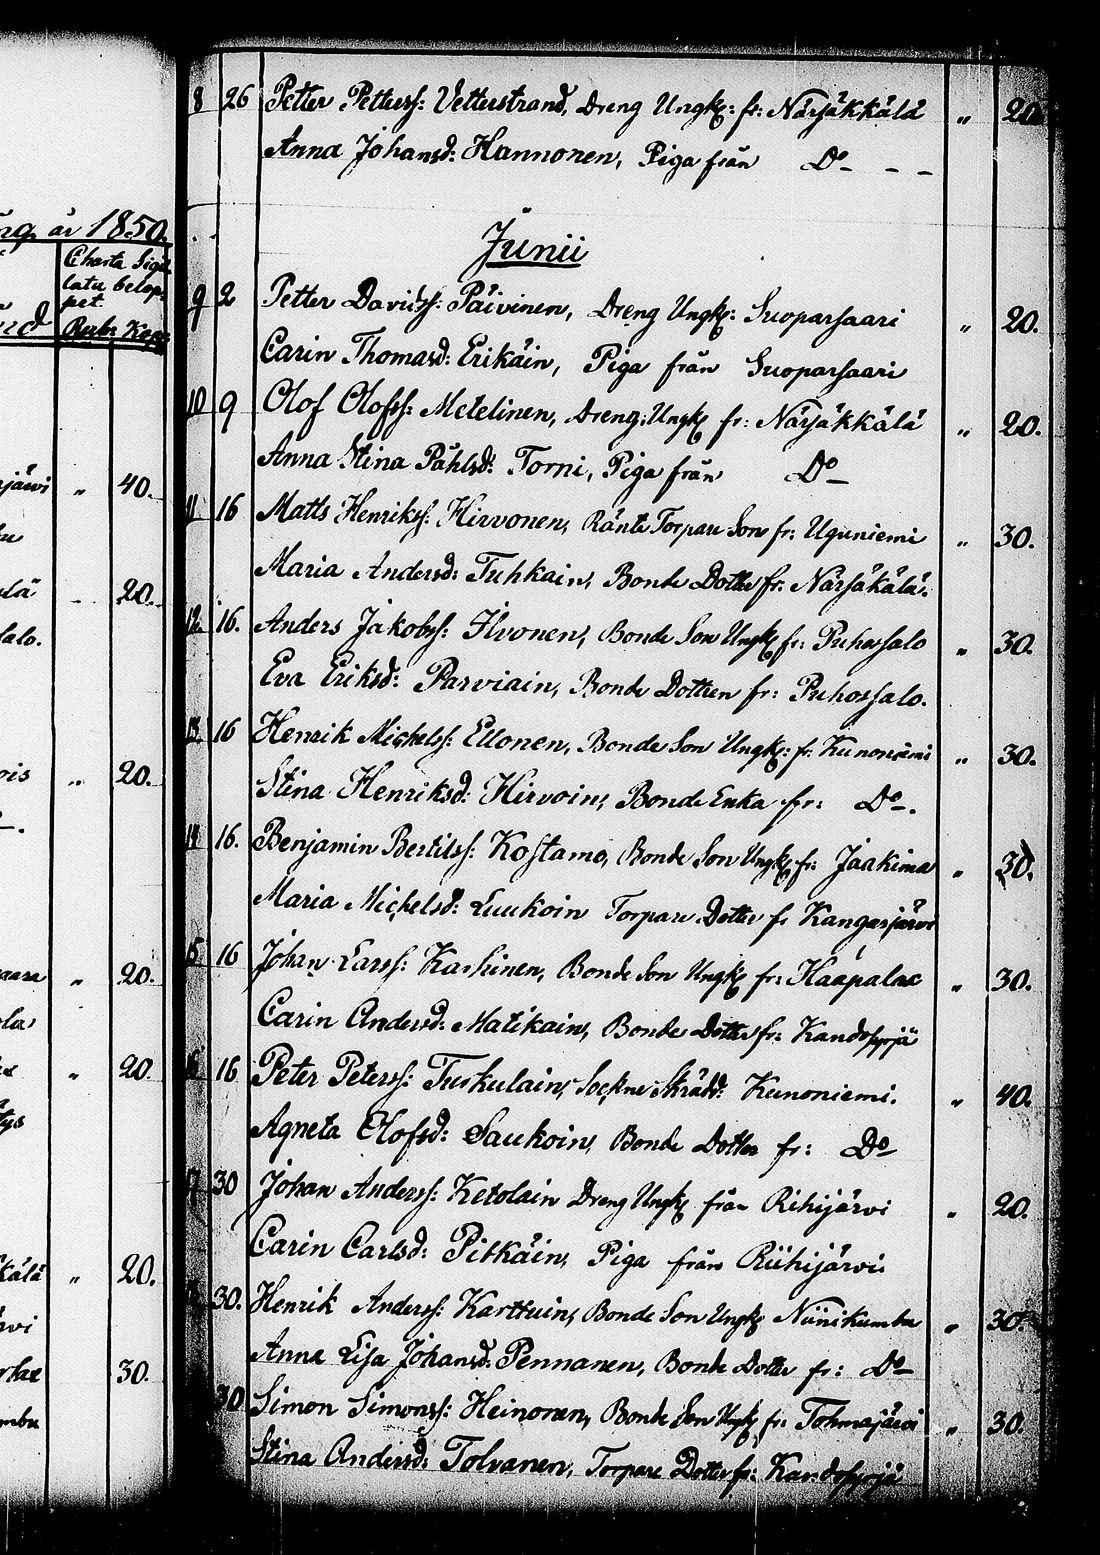 år 1850.
Charta Sigil
latæ belop
pet.
Rub. Kop.
järvi „ 40.
20.
salo.
„ 20.
vaara „ 20.
„ 20.
kälä „ 20.
30.
8 26 Petter Petterss: Vetterstrand, Dreng Ungk: fr: Närsäkkälä „ 20.
Anna Johansd: Hannonen, Piga från Do
Junii
9 2 Petter Davidss: Päivinen, Dreng Ungk: Suoparsaari „ 20.
Carin Thomasd: Erikäin, Piga från Suoparsaari
10 9 Olof Olofss: Metelinen, Dreng Ungk fr: Närsäkkälä „ 20.
Anna Stina Påhlsd: Torni, Piga från Do
11 16 Matts Henrikss: Hirvonen, Ränte Torpare Son fr: Uguniemi „ 30.
Maria Andersd: Tuhkain, Bonde Dotter fr: Närsäkälä.
12. 16. Anders Jakobss: Ilvonen, Bonde Son Ungk fr: Puhossalo „ 30.
Eva Eriksd: Parviain, Bonde Dottren fr: Puhossalo.
13. 16 Henrik Michelss: Ellonen, Bonde Son Ungk: fr: Kunoniemi „ 30.
Stina Henriksd: Hirvoin, Bonde Enka fr: Do.
14 16. Benjamin Bertilss: Kostamo, Bonde Son Ungk fr: Jaakima „ 30.
Maria Michelsd: Luukoin Torpare Dotter fr Kangasjärvi
15 16 Johan Larss: Karhinen, Bonde Son Ungk fr: Haapalax „ 30.
Carin Andersd: Matikain, Bonde Dotter fr: Kandosyrjä
16 16 Peter Peterss: Turkulain, Sockne Skrädd: Kunoniemi. „ 40.
Agneta Olofsd: Saukoin, Bonde Dotter fr: Do
17 30 Johan Anderss: Ketolain Dreng Ungk från Rihijärvi „ 20.
Carin Carlsd: Pitkäin, Piga från Riihijärvi
30. Henrik Anderss: Karttuin, Bonde Son Ungk Niinikumbu „ 30.
Anna Lisa Johansd: Pennanen, Bonde Dotter fr: Do
30 Simon Simonss: Heinonen, Bonde Son Ungk fr: Tohmajärvi „ 30.
Stina Andersd: Tolvanen, Torpare Dotter fr: Kandosyrjä